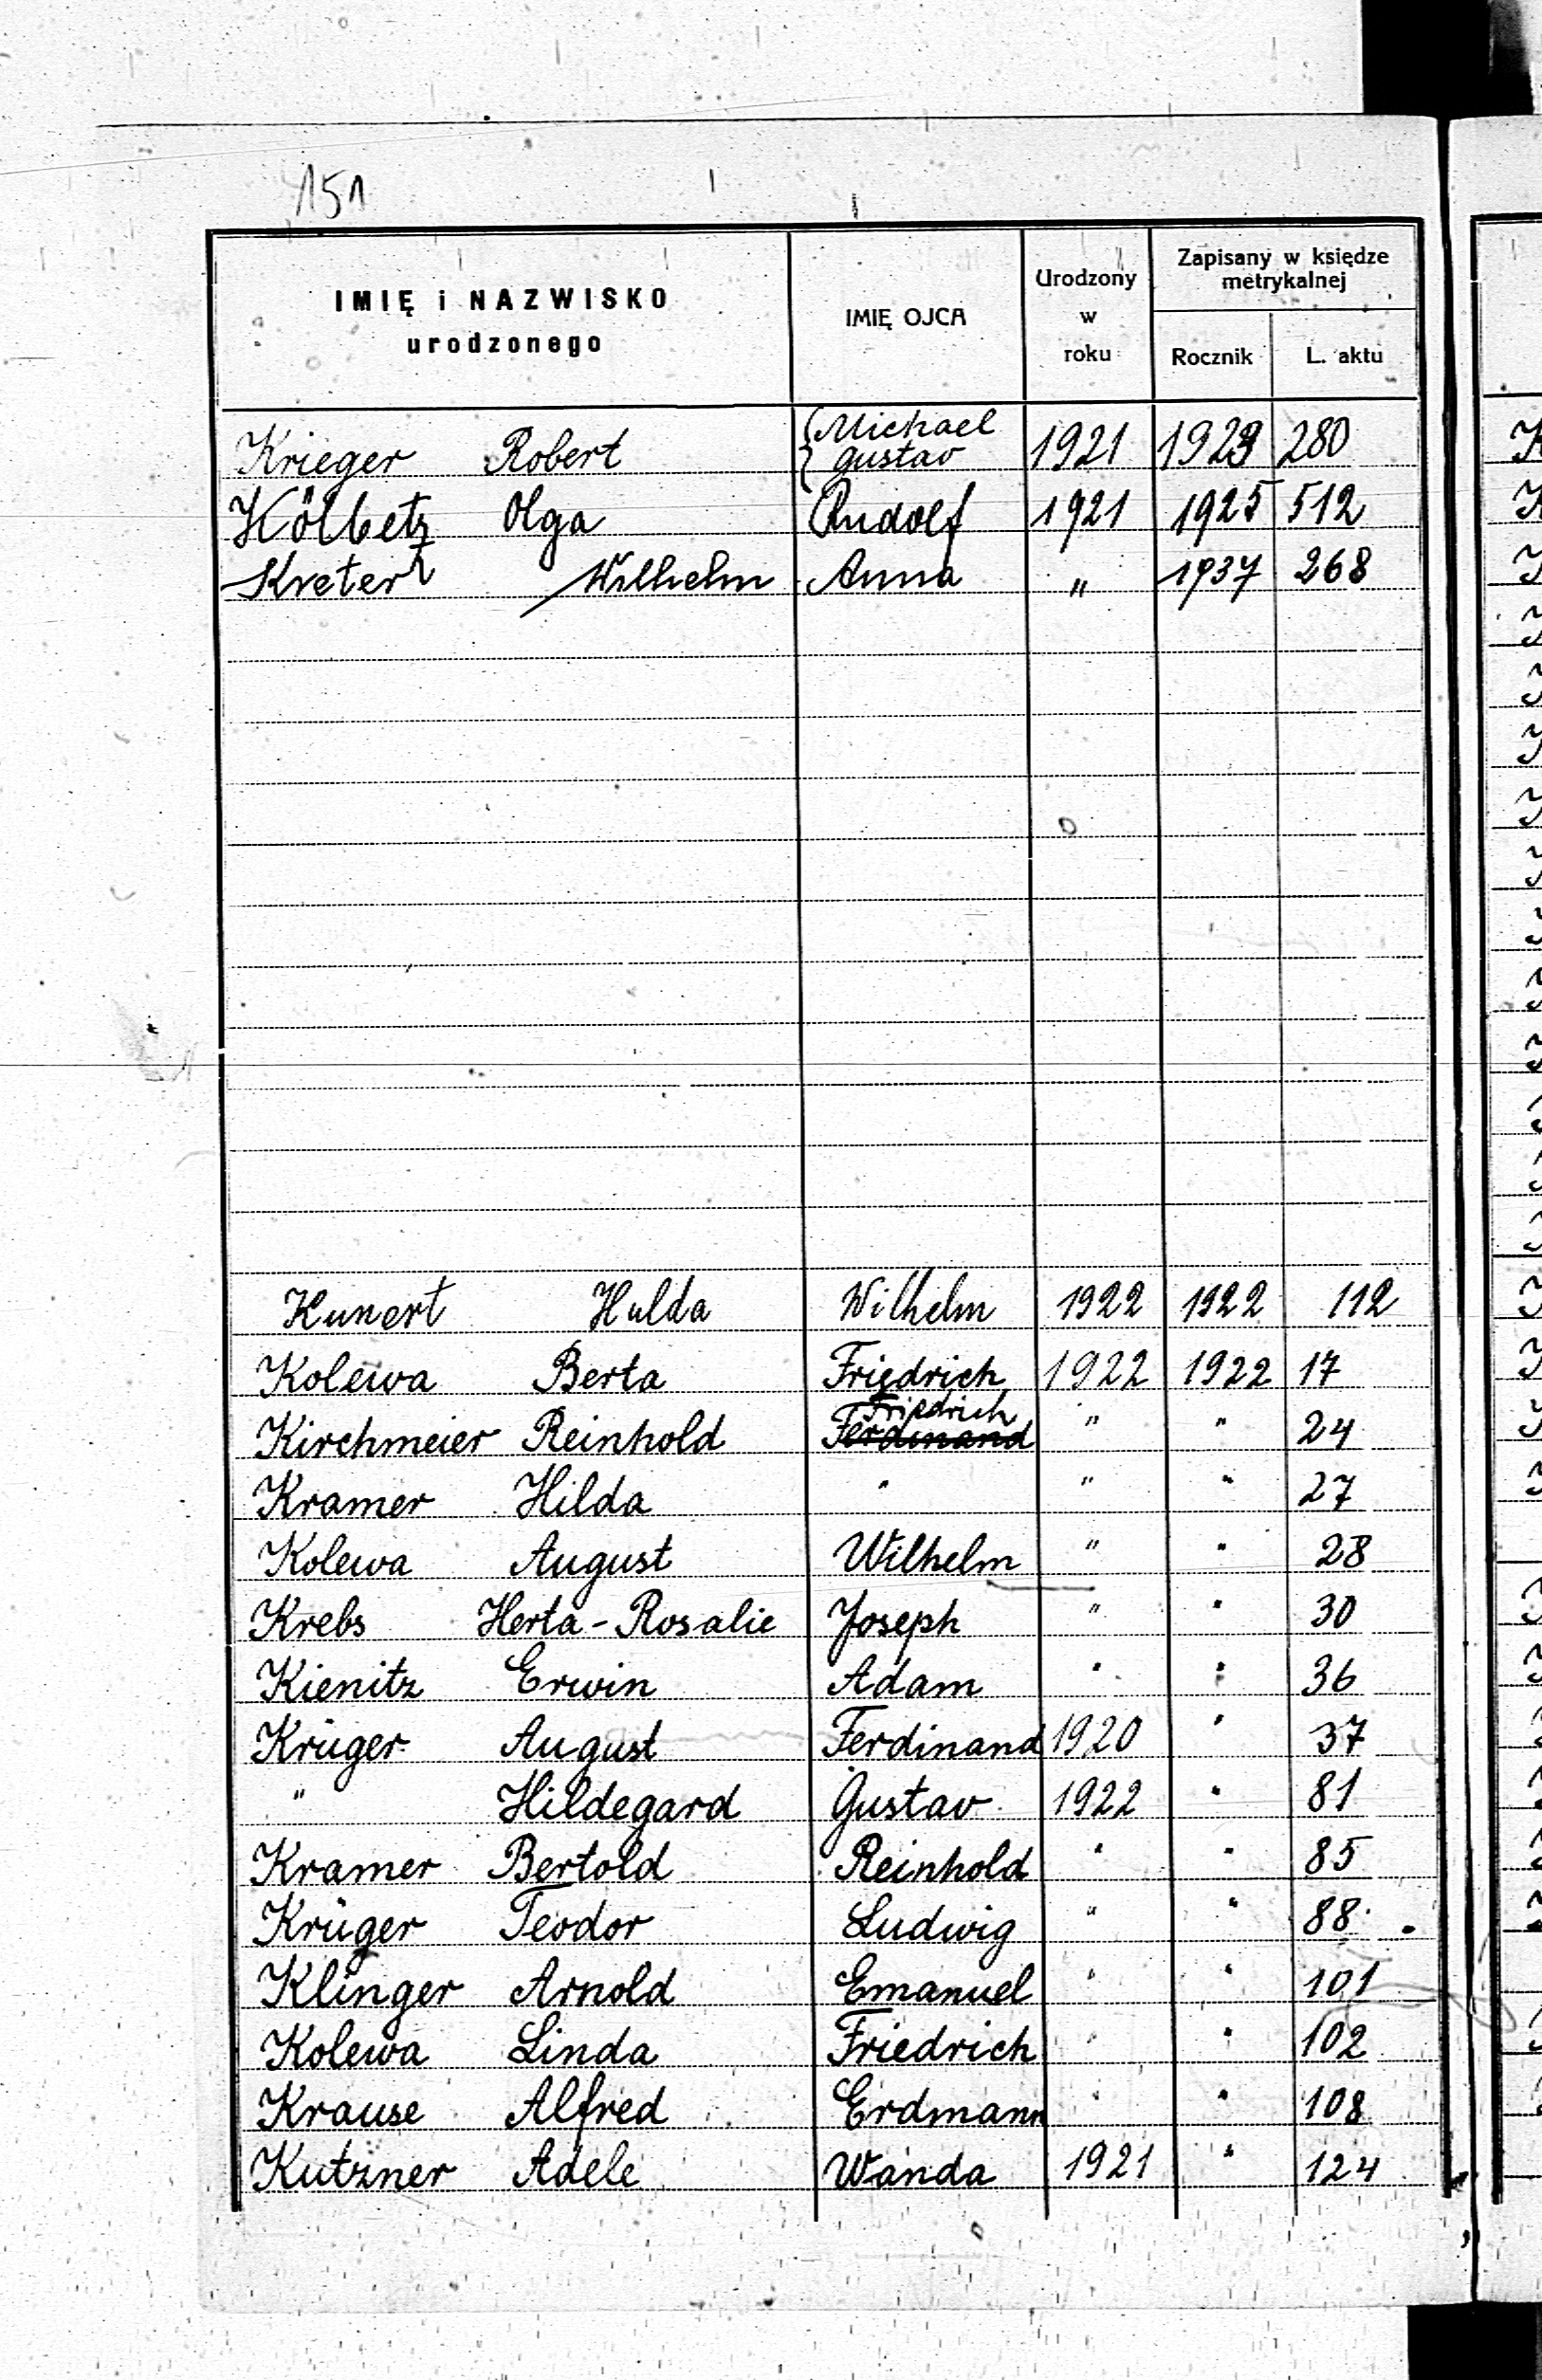 151
IMIĘ i NAZWISKO
urodzonego
IMIĘ OJCA
Urodzony
w
roku
Zapisany w księdze
metrykalnej
Rocznik L. aktu
Krieger Robert Michael Gustav 1921 1923 280
Kölbetz Olga Rudolf 1921 1925 512
Wilhelm Anna " 1937 268
Kunert Hulda Wilhelm 1922 1922 112
Kolewa Berta Friedrich 1922 1922 17
Friedrich
Kirchmeier Reinhold Ferdinand " " 24
Kramer Hilda " " " 27
Kolewa August Wilhelm " " 28
Krebs Herta-Rosalie Joseph " " 30
Kienitz Erwin Adam " " 36
Krüger August Ferdinand 1920 " 37
" Hildegard Gustav 1922 " 81
Kramer Bertold Reinhold " " 85
Krüger Teodor Ludwig " " 88
Klinger Arnold Emanuel " " 101
Kolewa Linda Friedrich " " 102
Krause Alfred Erdmann " " 108
Kutzner Adele Wanda 1921 " 124